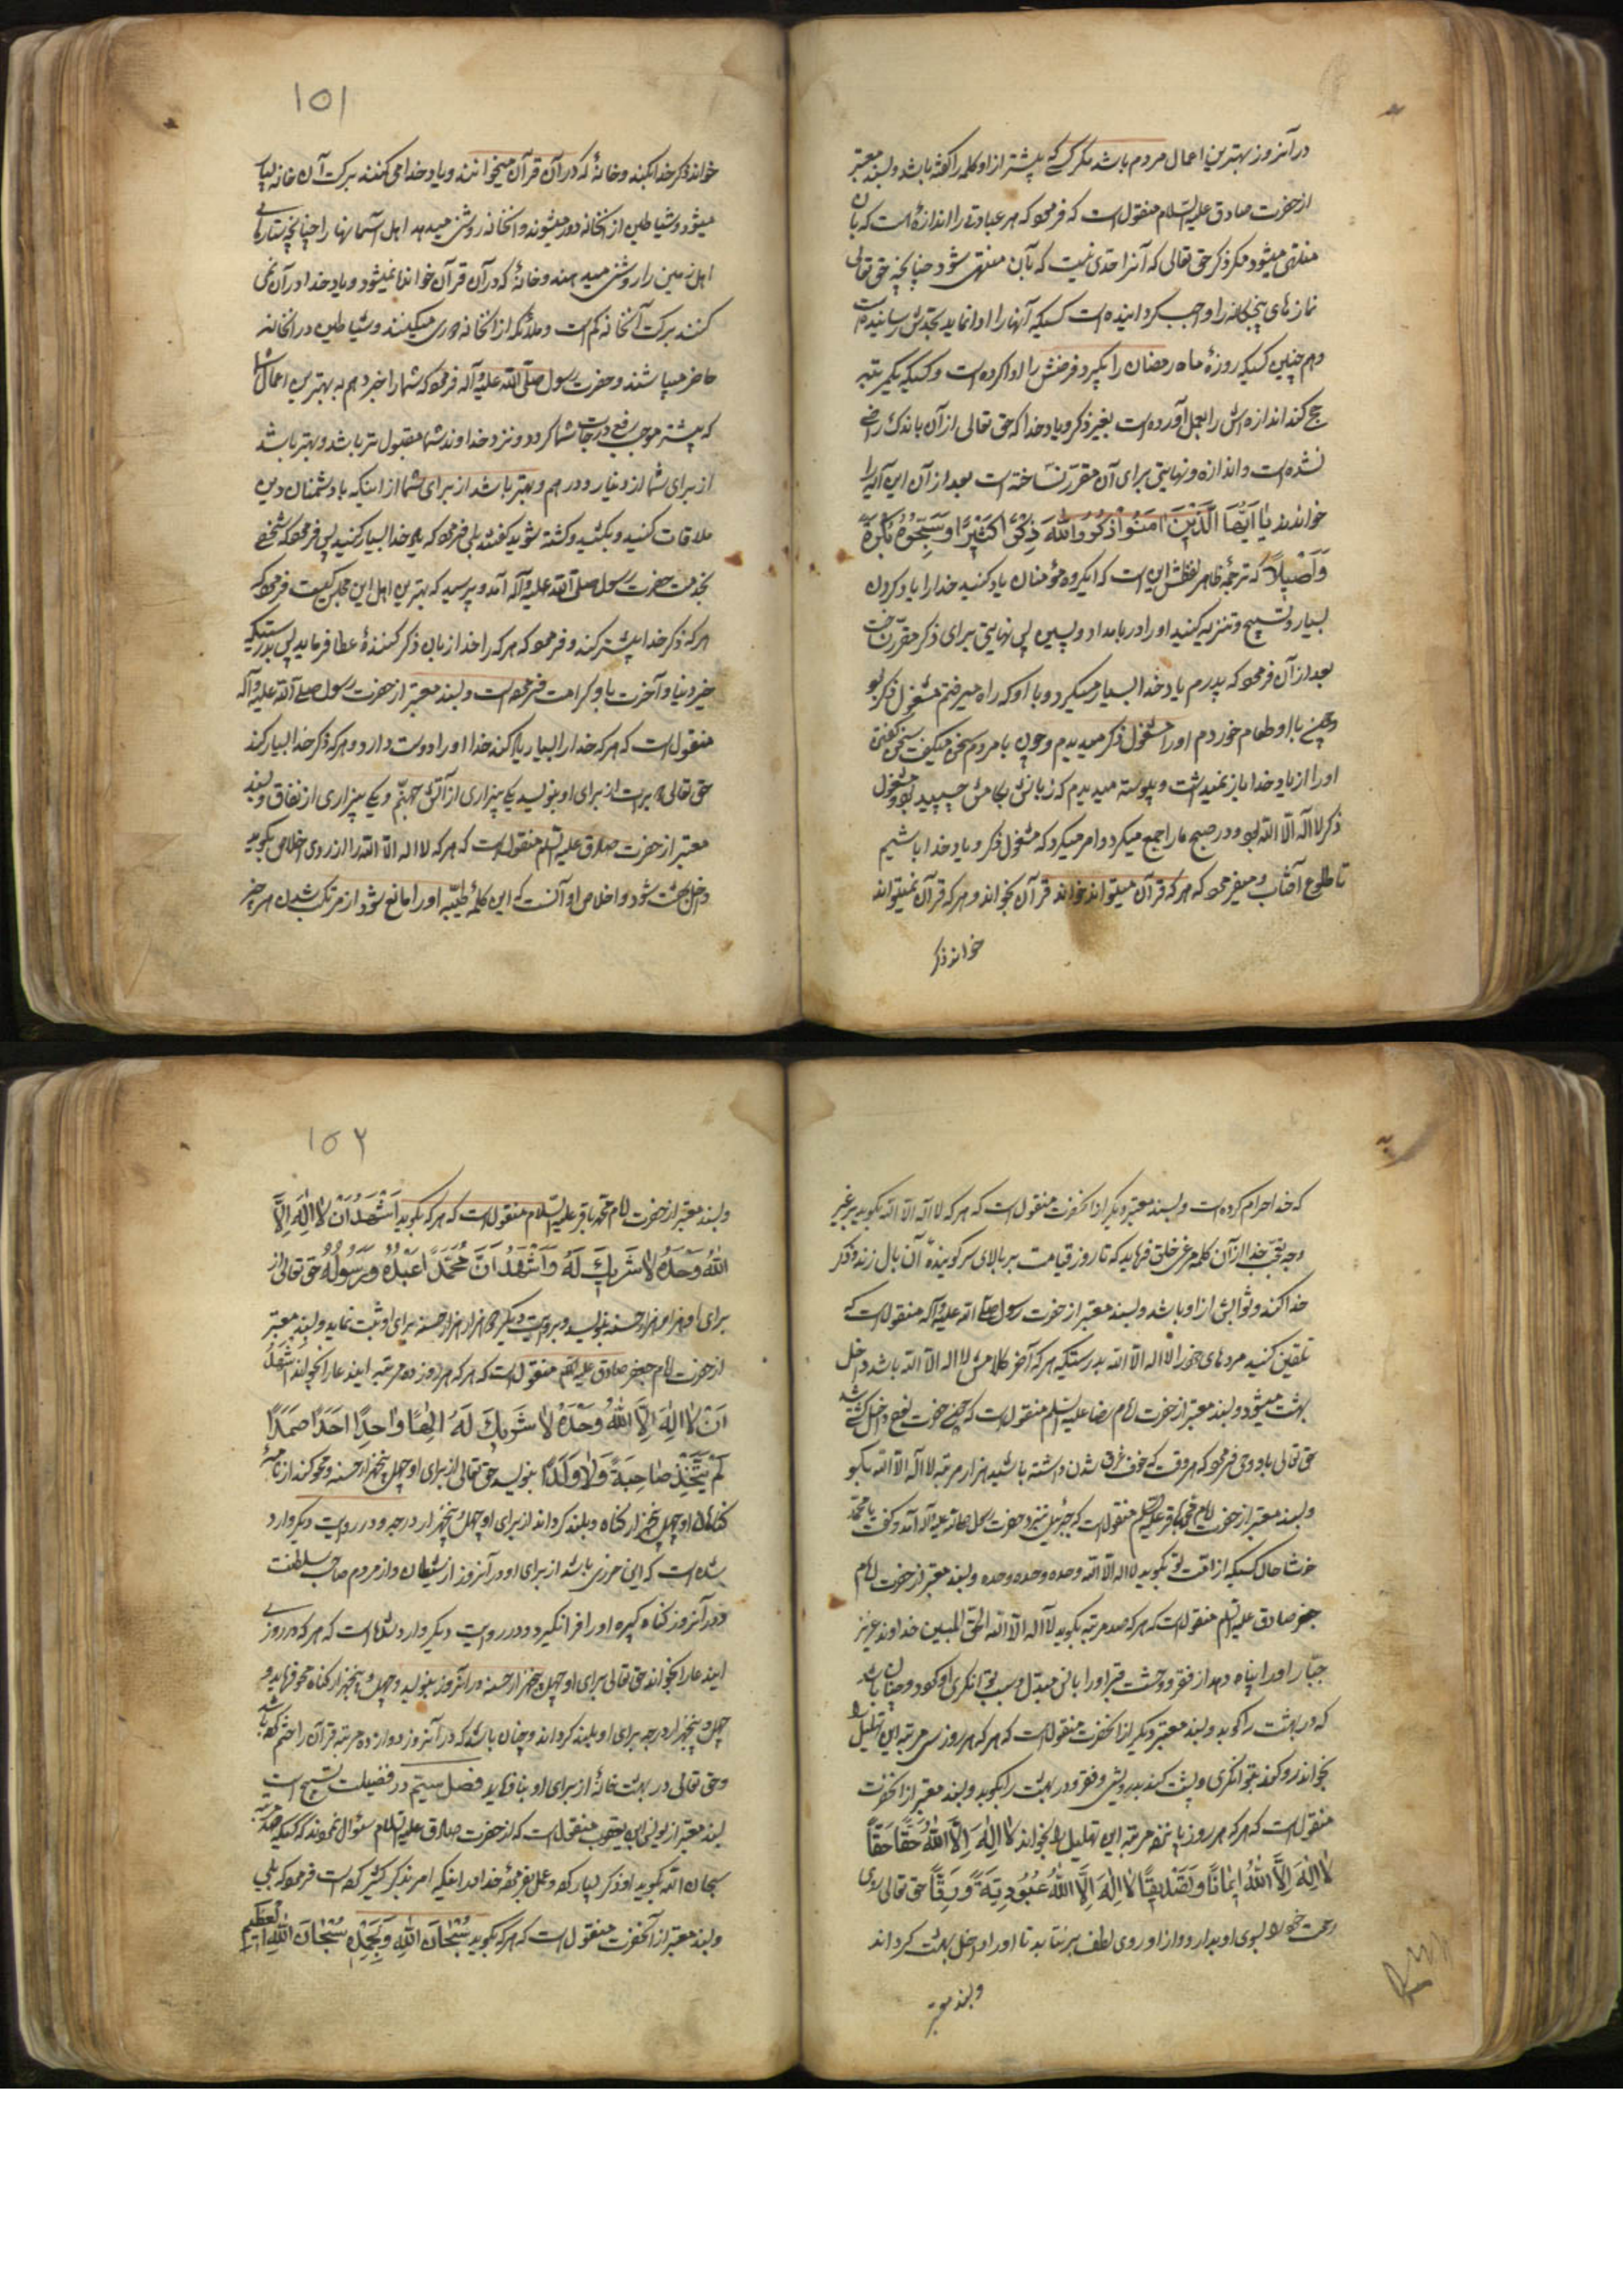 در آنروز بهترین اعمال مردم باشد مگر کسی که پیشتر از او کلمه را گفته باشد و بسند معتبر
از حضرت صادق علیه السلام منقول است که فرمود که هر عبادتی را اندازهٔ است که بآن
منتهی میشود مگر ذکر حق تعالی که آنرا حدی نیست که بآن منتهی شود چنانچه حق تعالی
نمازهای پنجگانه را واجب گردانیده است کسیکه آنها را ادا نماید بحدش رسانیده است
و هم چنین کسیکه روزهٔ ماه رمضان را بگیرد فرضش را ادا کرده است و کسیکه یکمرتبه
حج کند اندازه اش را بعمل آورده است بغیر ذکر و یاد خدا که حق تعالی از آن باندک راضی
نشده است و اندازه و نهایتی برای آن مقرر نساخته است بعد از آن این آیه را
خواندند یا اَیُّهَا الَّذینَ امَنُوا اذْکُرُوا اللهَ ذِکْرًا کَثیرًا وَسَبِّحُوهُ بُکْرَةً
وَاَصْیلاً که ترجمهٔ ظاهر لفظش این است که ایگروه مؤمنان یاد کنید خدا را یاد کردن
بسیار و تسبیح و تنزیه کنید او را در بامداد و پسین پس نهایتی برای ذکر مقرر نساخت
بعد از آن فرمود که پدرم یاد خدا بسیار میکرد و با او که راه میرفتم مشغول ذکر بود
و چون با او طعام خوردم او را مشغول ذکر میدیدم و چون با مردم سخن میگفت سخن گفتن
او را از یاد خدا باز نمیداشت و پیوسته میدیدم که زبانش بکامش چسپیده بود و مشغول
ذکر لا اله الا الله بود و در صبح ما را جمع میکرد و امر میکرد که مشغول ذکر و یاد خدا باشیم
تا طلوع آفتاب و میفرمود که هر که قرآن میتواند خواند قرآن بخواند و هر که قرآن نمیتواند
خواند ذکر
۱۵۱
خواند ذکر خدا بکند و خانهٔ که در آن قرآن میخوانند و یاد خدا می کنند برکت آن خانه بسیار
میشود و شیاطین از آنخانه دور میشوند و آنخانه روشنی میدهد اهل آسمانها را چنانچه ستارهای
اهل زمین را روشنی میدهند و خانهٔ که در آن قرآن خوانده نمیشود و یاد خدا در آن نمی
کنند برکت آنخانه کم است و ملائکه از آنخانه دوری میکنند و شیاطین در آنخانه
حاضر میباشند و حضرت رسول صلی الله علیه و آله فرمود که شما را خبر دهم به بهترین اعمال شما
که بیشتر موجب رفع درجات شما گردد و نزد خداوند شما مقبول تر باشد و بهتر باشد
از برای شما از دینار و درهم و بهتر باشد از برای شما از اینکه با دشمنان دین
ملاقات کنید و بکشید و کشته شوید گفتند بلی فرمود که یاد خدا بسیار کنید پس فرمود که شخصی
بخدمت حضرت رسول صلی الله علیه و آله آمد و پرسید که بهترین اهل این مجلس کیست فرمود که
هر که ذکر خدا بیشتر کند و فرمود که هر که را خدا زبان ذکر کنندهٔ عطا فرماید پس بدرستیکه
خیر دنیا و آخرت باو کرامت فرموده است و بسند معتبر از حضرت رسول صلی الله علیه و آله
منقول است که هر که خدا را بسیار یاد کند خدا او را دوست دارد و هر که ذکر خدا بسیار کند
حق تعالی دو برات از برای او بنویسد یکی بیزاری از آتش جهنم و یکی بیزاری از نفاق و بسند
معتبر از حضرت صادق علیه السلم منقول است که هر که لا اله الا الله را از روی اخلاص بگوید
داخل بهشت شود و اخلاص او آنست که این کلمهٔ طیبه او را مانع شود از مرتکب شدن هر چیز
که خدا حرام کرده است و بسند معتبر دیگر از آنحضرت منقول است که هر که لا اله الا الله بگوید بر غیر
وجه تعجب خدا از آن کلمه مرغی خلق فرماید که تا روز قیامت بر بالای سر گویندهٔ آن بال زند و ذکر
خدا کند و ثوابش از او باشد و بسند معتبر از حضرت رسول صلی الله علیه و آله منقول است که
تلقین کنید مرده‌ای خود را لا اله الا الله بدرستیکه هر که آخر کلامش لا اله الا الله باشد داخل
بهشت میشود و بسند معتبر از حضرت امام رضا علیه السلم منقول است که چون حضرت نوح داخل کشتی شد
حق تعالی باو وحی فرمود که هر وقت که خوف غرق شدن داشته باشید هزار مرتبه لا اله الا الله بگو
و بسند معتبر از حضرت امام محمد باقر علیه السلم منقول است که جبرئیل نزد حضرت رسول صلی الله علیه و آله آمد و گفت یا محمد
خوشا حال کسیکه از امت تو بگوید لا اله الا الله وحده وحده وحده و بسند معتبر از حضرت امام
جعفر صادق علیه السلم منقول است که هر که صد مرتبه بگوید لا اله الا الله الحق المبین خداوند عزیز
جبار او را پناه دهد از فقر و وحشت قبر او را بانس مبدل و سبب توانگری او گردد و چنان باشد
که در بهشت را کوبد و بسند معتبر دیگر از آنحضرت منقول است که هر که هر روز سی مرتبه این تهلیل را
بخواند رو کند بتوانگری و پشت کند بدرویشی و فقر و در بهشت را بکوبد و بسند معتبر از آنحضرت
منقول است که هر که هر روز پانزده مرتبه این تهلیل را بخواند لا اِلهَ اِلَّا اللهُ حَقًّا حَقًّا
لا اِلهَ اِلَّا اللهُ ایمانًا وَتَصْدیقًا لا اِلهَ اِلَّا اللهُ عُبُودِیَّةً وَرِقًّا حق تعالی روی
رحمت خود را بسوی او بدارد و از او روی لطف برنتابد تا او را داخل بهشت گرداند
و بسند معتبر
۱۵۲
و بسند معتبر از حضرت امام محمد باقر علیه السلام منقول است که هر که بگوید اَشْهَدُ اَنْ لا اِلهَ اِلَّا
اللهُ وَحْدَهُ لا شَریکَ لَهُ وَاَشْهَدُ اَنَّ مُحَمَّدًا عَبْدُهُ وَرَسُولُهُ حق تعالی از
برای او هزار هزار حسنه بنویسد و بروایت دیگر هزار هزار حسنه برای او ثبت نماید و بسند معتبر
از حضرت امام جعفر صادق علیه السلم منقول است که هر که هر روز ده مرتبه ایندعا را بخواند اَشْهَدُ
اَنْ لا اِلهَ اِلَّا اللهُ وَحْدَهُ لا شَریکَ لَهُ اِلهًا واحِدًا اَحَدًا صَمَدًا
لَمْ یَتَّخِذْ صاحِبَةً وَلا وَلَدًا بنویسد حق تعالی از برای او چهل و پنجهزار حسنه و محو کند از نامهٔ
گناهان او چهل و پنجهزار گناه و بلند گرداند از برای او چهل و پنجهزار درجه و در روایت دیگر وارد
شده است که این حرزی باشد از برای او در آنروز از شیطان و از مردم صاحب سلطنت
و در آنروز گناه کبیره او را فرا نگیرد و در روایت دیگر وارد شده است که هر که در روزی
ایندعا را بخواند حق تعالی برای او چهل و پنجهزار حسنه در آنروز بنویسد و چهل و پنجهزار گناه محو فرماید و
چهل و پنجهزار درجه برای او بلند گرداند و چنان باشد که در آنروز دوازده مرتبه قرآن را ختم کرده باشد
و حق تعالی در بهشت خانهٔ از برای او بنا فرماید فصل سیّم در فضیلت تسبیح است
بسند معتبر از یونس ابن یعقوب منقول است که از حضرت صادق علیه السلام سئوال نمودند که کسیکه صد مرتبه
سبحان الله بگوید او ذکر بسیار کرده و عمل بفرمودهٔ خدا در اینکه امر بذکر کثیر کرده است فرمود که بلی
و بسند معتبر از آنحضرت منقول است که هر که بگوید سُبْحانَ اللهِ وَبِحَمْدِهِ سُبْحانَ اللهِ العَظیم